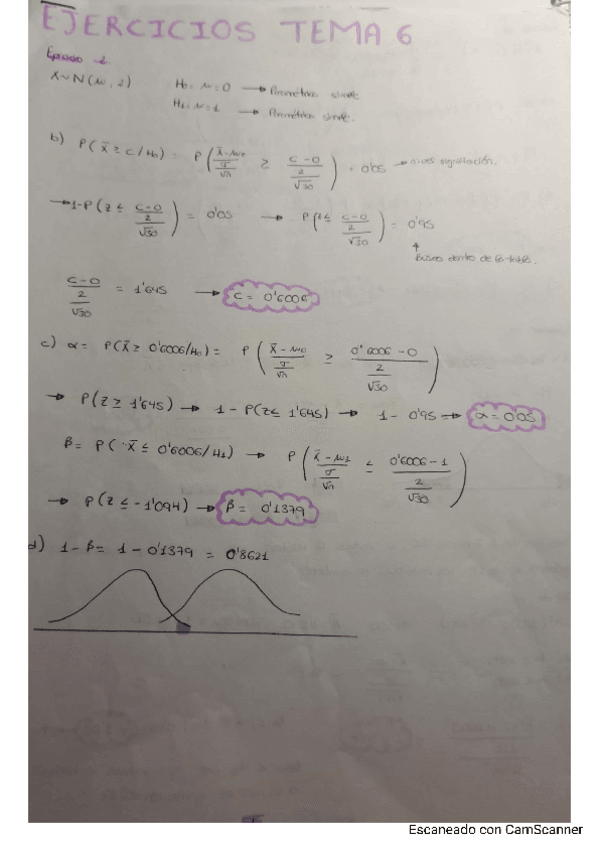 EJERCICIOS TEMA 6
Ejercicio 2.
X~N(μ, 2) H0: μ=0 → Paramétrica simple
H1: μ=1 → Paramétrica simple.
b) P(X̄ ≥ c/H0) = P( (X̄-μ0)/(σ/√n) ≥ (c-0)/(2/√30) ) = 0'05 → nivel significación.
→ 1-P(z ≤ (c-0)/(2/√30)) = 0'05 → P(z ≤ (c-0)/(2/√30)) = 0'95
↑
busco dentro de la tabla.
(c-0)/(2/√30) = 1'645 → c = 0'6006
c) α = P(X̄ ≥ 0'6006/H0) = P( (X̄-μ0)/(σ/√n) ≥ (0'6006-0)/(2/√30) )
→ P(z ≥ 1'645) → 1-P(z ≤ 1'645) → 1-0'95 → α = 0'05
β = P(X̄ ≤ 0'6006/H1) → P( (X̄-μ1)/(σ/√n) ≤ (0'6006-1)/(2/√30) )
→ P(z ≤ -1'094) → β = 0'1379
d) 1-β = 1-0'1379 = 0'8621
Escaneado con CamScanner